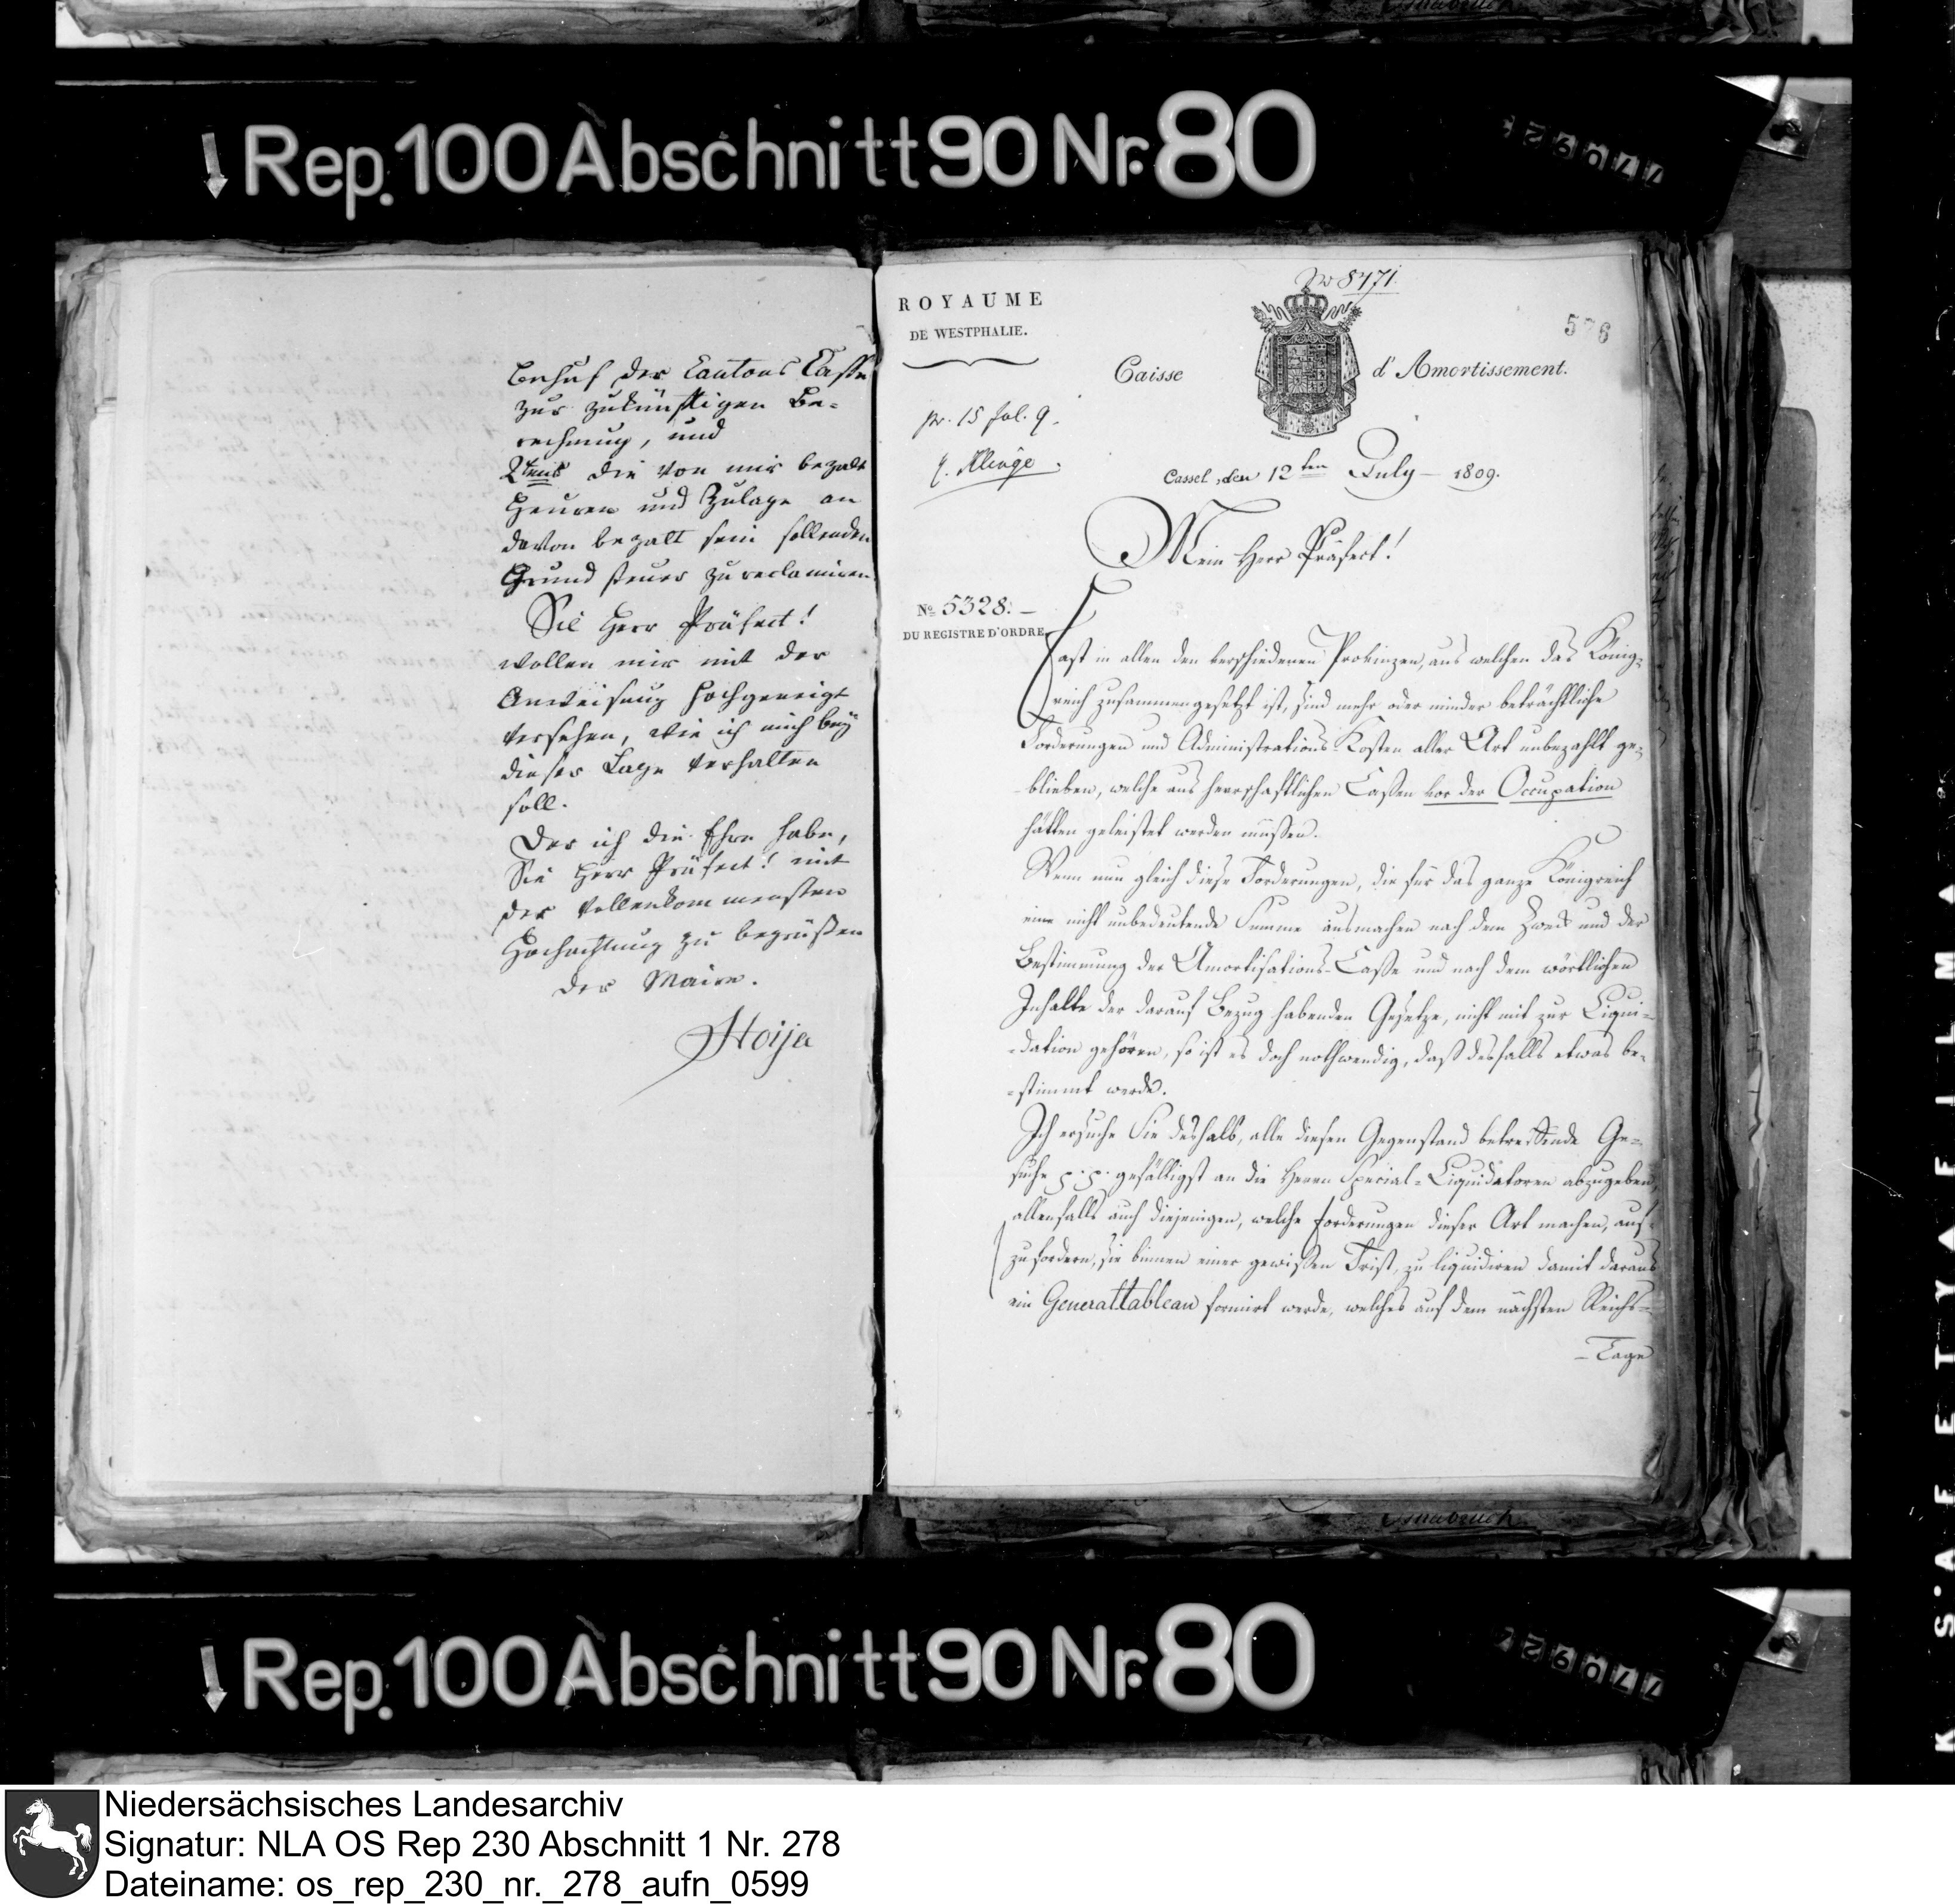 Rep. 100 Abschnitt 90 Nr. 80
Behuf der Cantons Casse
zur zukünftigen Be-
rechnung, und
2tens die von mir bezalte
Heuren und Zulage an
davon bezalt sein sollenden
Grund steuer zu reclamiren
Sie Herr Präfect!
wollen mir mit der
Anweisung hochgeneigt
versehen, wie ich mich bey
dieser Lage verhalten
soll.
Der ich die Ehre habe,
Sie Herr Präfect! mit
der vollenkommensten
Hochachtung zu begrüßen
Der Maire.
Hoija
No 8471.
ROYAUME
DE WESTPHALIE.
576
Caisse d'Amortissement.
pr. 15 Jul. 9.
Cassel, den 12ten July – 1809.
Mein Herr Präfect!
No 5328. –
DU REGISTRE D'ORDRE
Fast in allen den verschiedenen Provinzen, aus welchen das König-
reich zusammengesetzt ist, sind mehr oder minder beträchtliche
Forderungen und Administrations-Kosten aller Art unbezahlt ge-
blieben, welche aus herrschaftlichen Caßen vor der Occupation
hätten geleistet werden müssen.
Wenn nun gleich diese Forderungen, die für das ganze Königreich
eine nicht unbedeutende Summe ausmachen nach dem Zweck und der
Bestimmung der Amortisations-Caße und nach dem wörtlichen
Inhalte der darauf Bezug habenden Gesetze, nicht mit zur Liqui-
-dation gehören, so ist es doch nothwendig, daß desfalls etwas be-
-stimmt werde.
Ich ersuche Sie deshalb, alle diesen Gegenstand betreffende Ge-
suche p.p. gefälligst an die Herrn Special-Liquidatoren abzugeben,
allenfalls auch diejenigen, welche Forderungen dieser Art machen, auf-
zufordern, sie binnen einer gewißen Frist, zu liquidiren damit daraus
ein Generaltableau formirt werde, welches auf dem nächsten Reichs-
-Tage
Osnabrück
Rep. 100 Abschnitt 90 Nr. 80
Niedersächsisches Landesarchiv
Signatur: NLA OS Rep 230 Abschnitt 1 Nr. 278
Dateiname: os_rep_230_nr._278_aufn_0599